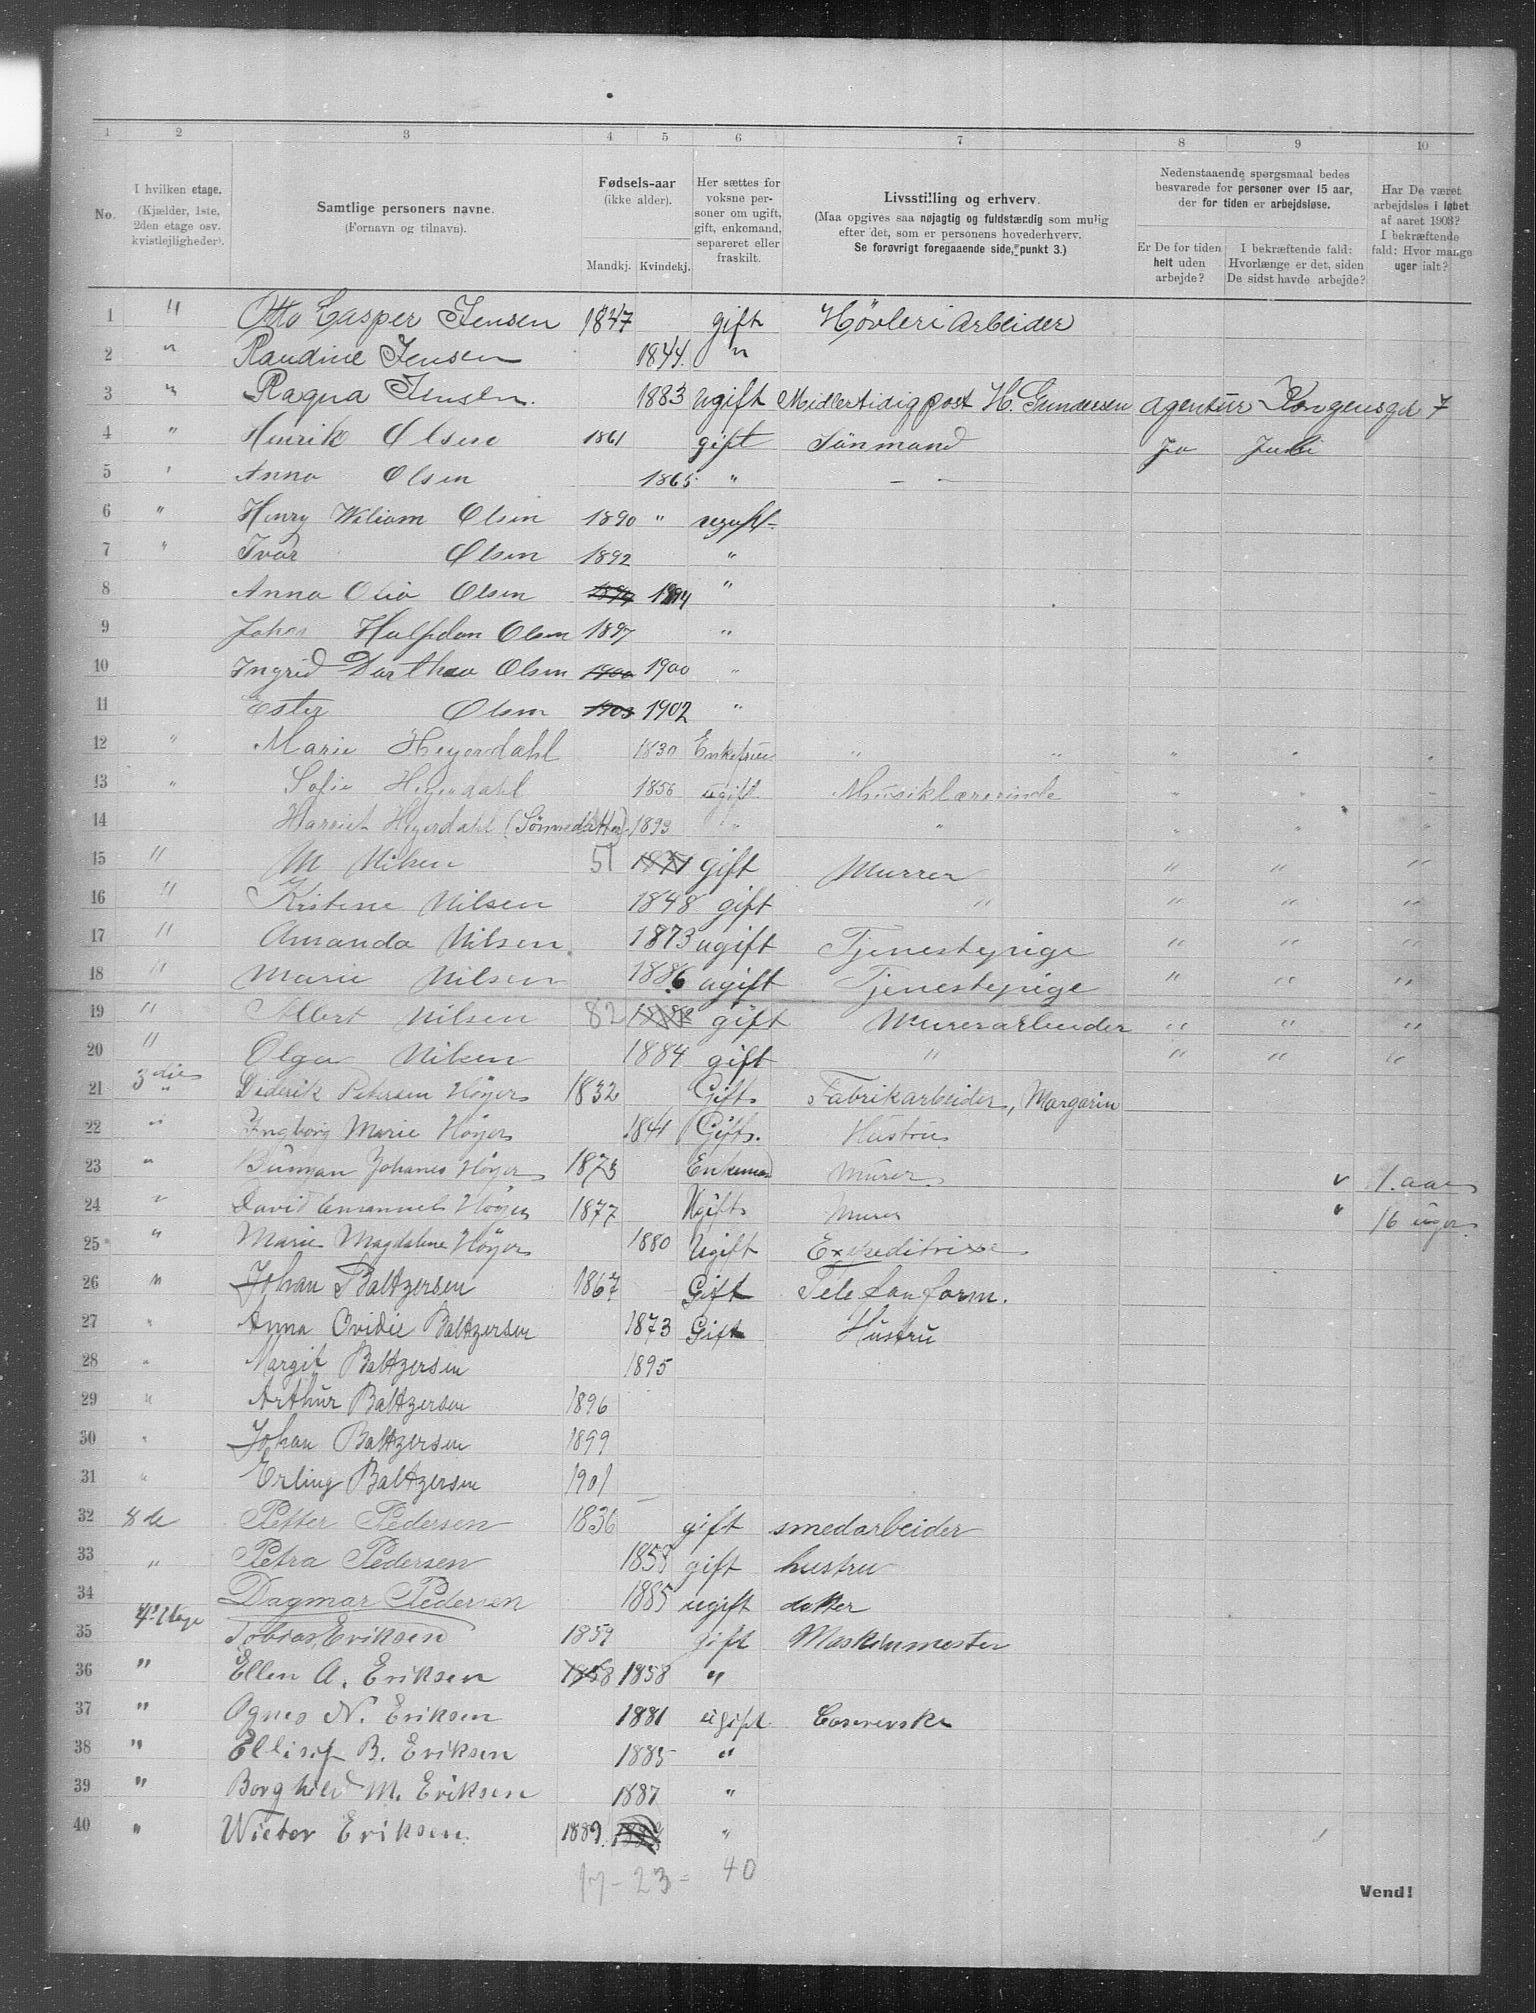 1 2 3 4 5 6 7 8 9 10
No.
I hvilken etage. (Kjælder, 1ste, 2den etage osv. kvistlejligheder).
Samtlige personers navne. (Fornavn og tilnavn).
Fødsels-aar (ikke alder). Mandkj. Kvindekj.
Her sættes for voksne personer om ugift, gift, enkemand, separeret eller fraskilt.
Livsstilling og erhverv. (Maa opgives saa nøjagtig og fuldstændig som mulig efter det, som er personens hovederhverv. Se forøvrigt foregaaende side, punkt 3.)
Nedenstaaende spørgsmaal bedes besvarede for personer over 15 aar, der for tiden er arbejdsløse.
Er De for tiden helt uden arbejde?
I bekræftende fald: Hvorlænge er det, siden De sidst havde arbejde?
Har De været arbejdsløs i løbet af aaret 1903? I bekræftende fald: Hvor mange uger ialt?
1 " Otto Casper Jensen 1847 gift Høvleriarbeider
2 " Randine Jensen 1844 "
3 " Ragna Jensen. 1883 ugift Midlertidig post H. Gundersen Agentur Kongensgd 7
4 " Henrik Olsen 1861 gift Ja
5 " Anna Olsen 1865 " - -
6 " Henry Wiliam Olsen 1890 " ugift
7 " Ivar Olsen 1892 "
8 Anna Olia Olsen 1894 1894 "
9 Johan Halfdan Olsen 1897 "
10 Ingrid Dorthea Olsen 1900 1900 "
11 Ester Olsen 1903 1902 "
12 " Marie Heyerdahl 1830 Enkefrue " " " " "
13 " Sofie Heyerdahl 1856 ugift Musiklærerinde " " "
14 Harriet Heyerdahl (Sønnedatter) 1893 " " " " "
15 " M Nilsen 51 gift Murrer " " "
16 " Kristine Nilsen 1848 gift " " " "
17 " Amanda Nilsen 1873 ugift Tjenestepige " " "
18 " Marie Nilsen 1886 ugift Tjenestepige " " "
19 " Albert Nilsen 82 gift Murerarbeider " " "
20 " Olga Nilsen 1884 gift " " " "
21 3die " Diderik Petersen Høyer 1832 Gift Fabrikarbeider, Margarin
22 " Ingborg Marie Høyer 1841 Gift. Hustru
23 " Johanes Høyer 1873 Enkemand Murer 1. aar
24 " David Emanuel Høyer 1877 Ugift Murer " 16 uger
25 " Marie Magdalene Høyer 1880 Ugift Expeditrisse
26 " Johan Baltzersen 1867 Gift Telefonform.
27 " Anna Ovidie Baltzersen 1873 Gift Hustru
28 " Margit Baltzersen 1895
29 " Arthur Baltzersen 1896
30 " Johan Baltzersen 1899
31 " Erling Baltzersen 1901
32 Petter Pedersen 1836 gift smedarbeider
33 " Petra Pedersen 1858 gift hustru
34 Dagmar Pedersen 1885 ugift datter
35 4. Etage Tobias Eriksen 1859 gift Maskinmester
36 " Ellen A. Eriksen 1858 1858 "
37 " Agnes N. Eriksen 1881 ugift
38 " Ellisif B. Eriksen 1885 "
39 " Borghild M. Eriksen 1887 "
40 " Wictor Eriksen. 1889. "
17 - 23 = 40
Vend!